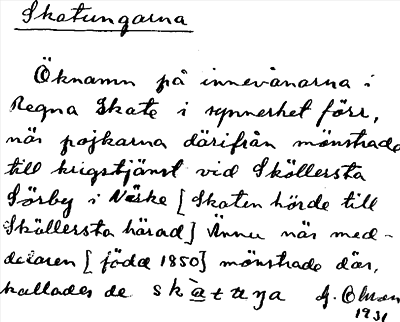 Skatungarna
Öknamn på innevånarna i
Regna Skate i synnerhet förr,
när pojkarna därifrån mönstrade
till krigstjänst vid Sköllersta
Sörby i Närke [Skaten hörde till
Sköllersta härad] Ännu när med-
delaren [född 1850] mönstrade där,
kallades de skatuga G. Ohson
1931